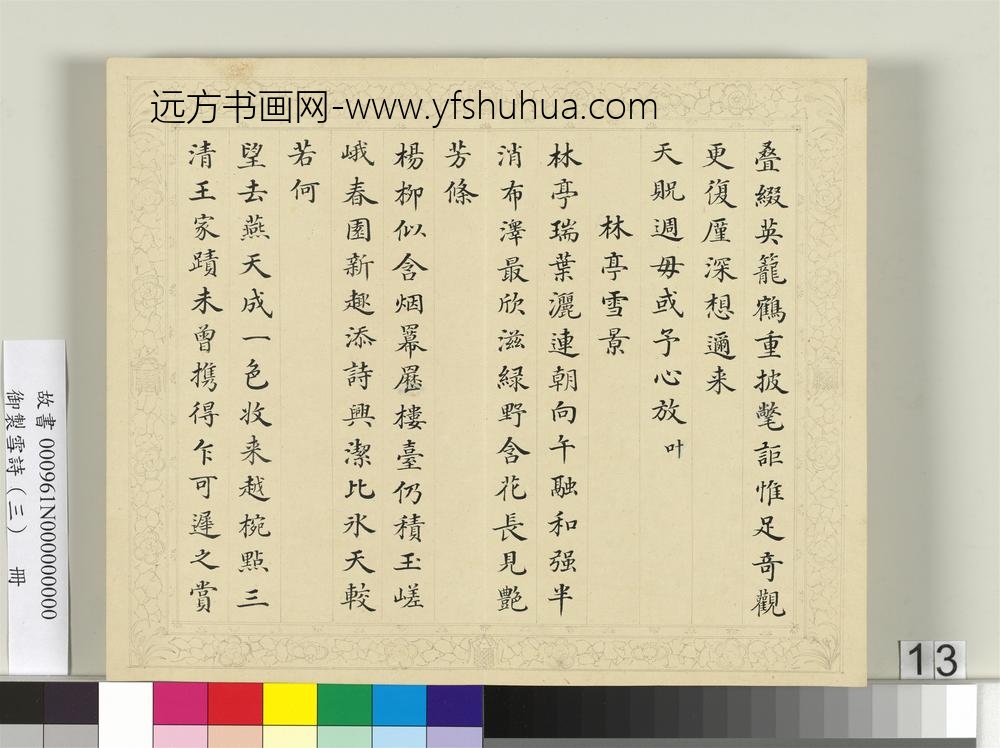 远方书画网-www.yfshuhua.com
叠綴英籠鶴重披氅詎惟足奇觀
更復廑深想邇来
天貺週毋或予心放叶
林亭雪景
林亭瑞葉灑連朝向午融和强半
消布澤最欣滋緑野含花長見艷
芳條
楊柳似含烟羃羃樓臺仍積玉嵯
峨春園新趣添詩興潔比氷天較
若何
望去燕天成一色收来越椀點三
清王家蹟未曾携得乍可遲之賞
故書 000961N000000000
御製雪詩(三) 冊
13